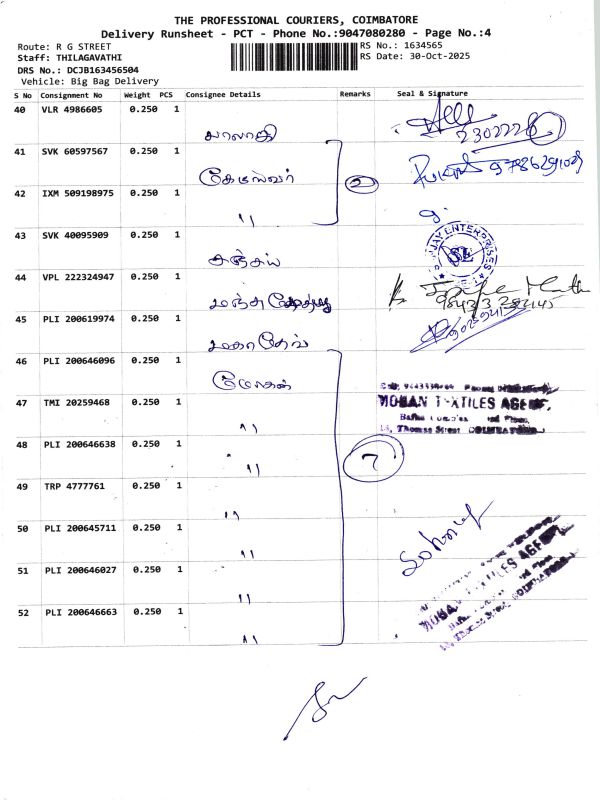 THE PROFESSIONAL COURIERS, COIMBATORE
Delivery Runsheet - PCT - Phone No.:9047080280 - Page No.:4
Route: R G STREET
RS No.: 1634565
Staff: THILAGAVATHI
RS Date: 30-Oct-2025
DRS No.: DCJB163456504
Vehicle: Big Bag Delivery
S No Consignment No Weight PCS Consignee Details Remarks Seal & Signature
40 VLR 4986605 0.250 1
பாலாஜி
41 SVK 60597567 0.250 1
2
42 IXM 509198975 0.250 1
"
43 SVK 40095909 0.250 1
சஞ்சய்
44 VPL 222324947 0.250 1
45 PLI 200619974 0.250 1
மகாதேவ்
46 PLI 200646096 0.250 1
மோகன்
MOHAN TEXTILES AGENCY,
47 TMI 20259468 0.250 1
"
48 PLI 200646638 0.250 1
7
"
49 TRP 4777761 0.250 1
"
50 PLI 200645711 0.250 1
"
51 PLI 200646027 0.250 1
"
52 PLI 200646663 0.250 1
"